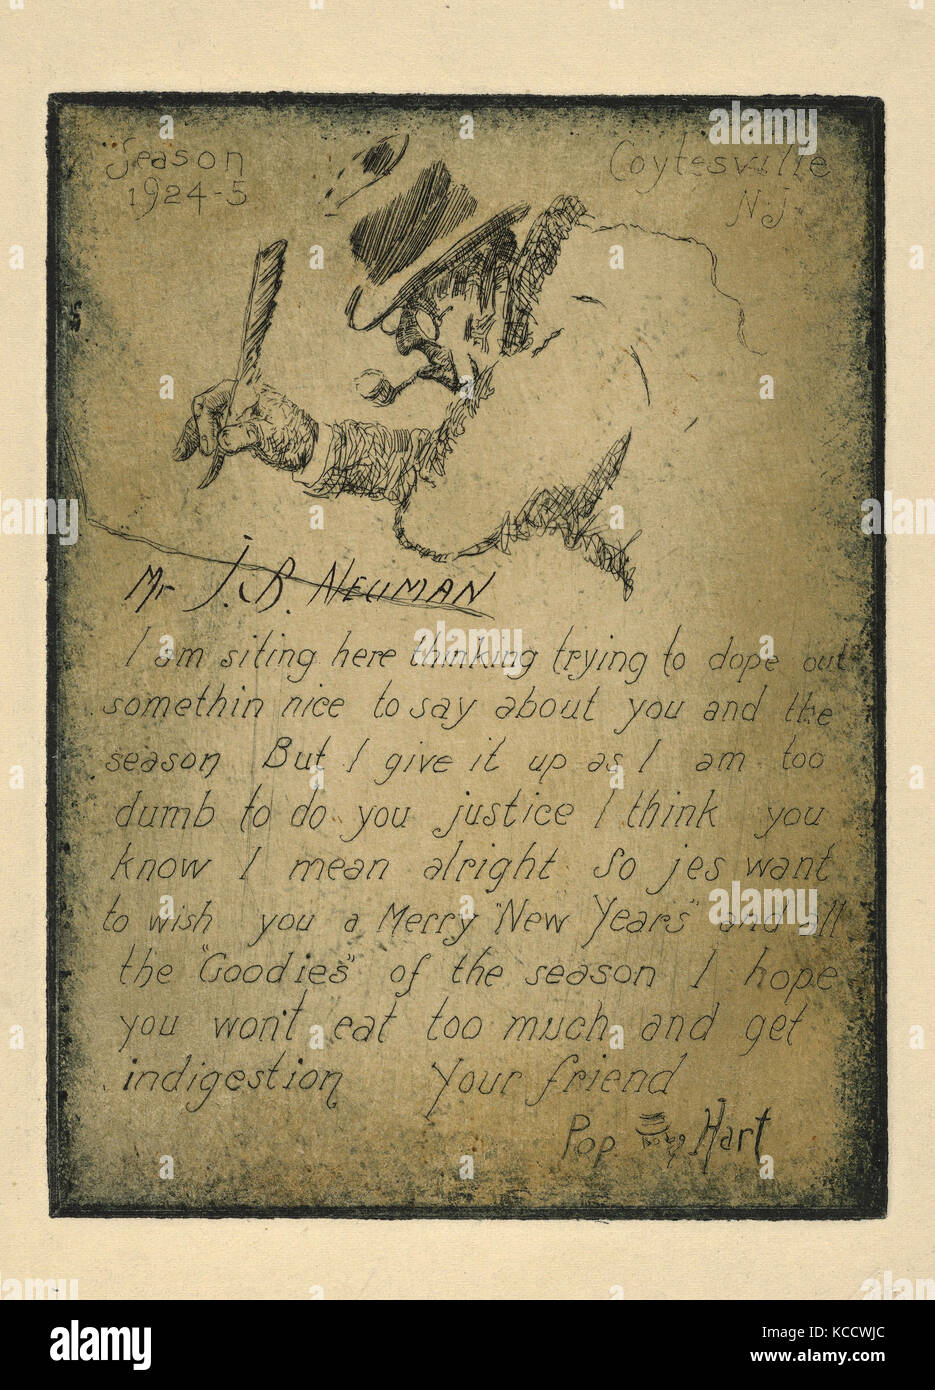 Season
1924-5
Coytesville
N.J.
Mr J.B. NEUMAN
I am siting here thinking trying to dope out
somethin nice to say about you and the
season But I give it up as I am too
dumb to do you justice I think you
know I mean alright So jes want
to wish you a Merry "New Years" and all
the "Goodies" of the season I hope
you won't eat too much and get
indigestion Your friend
Pop Hart
alamy
Image ID: KCCWJC
www.alamy.com